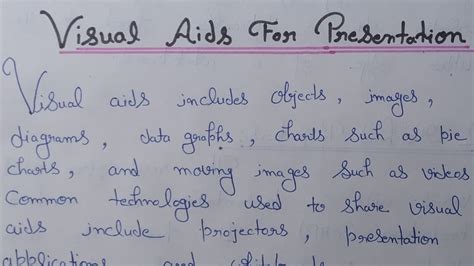 Visual Aids For Presentation
Visual aids includes objects, images,
diagrams, data graphs, charts such as pie
charts, and moving images such as videos
Common technologies used to share visual
aids include projectors, presentation
applications